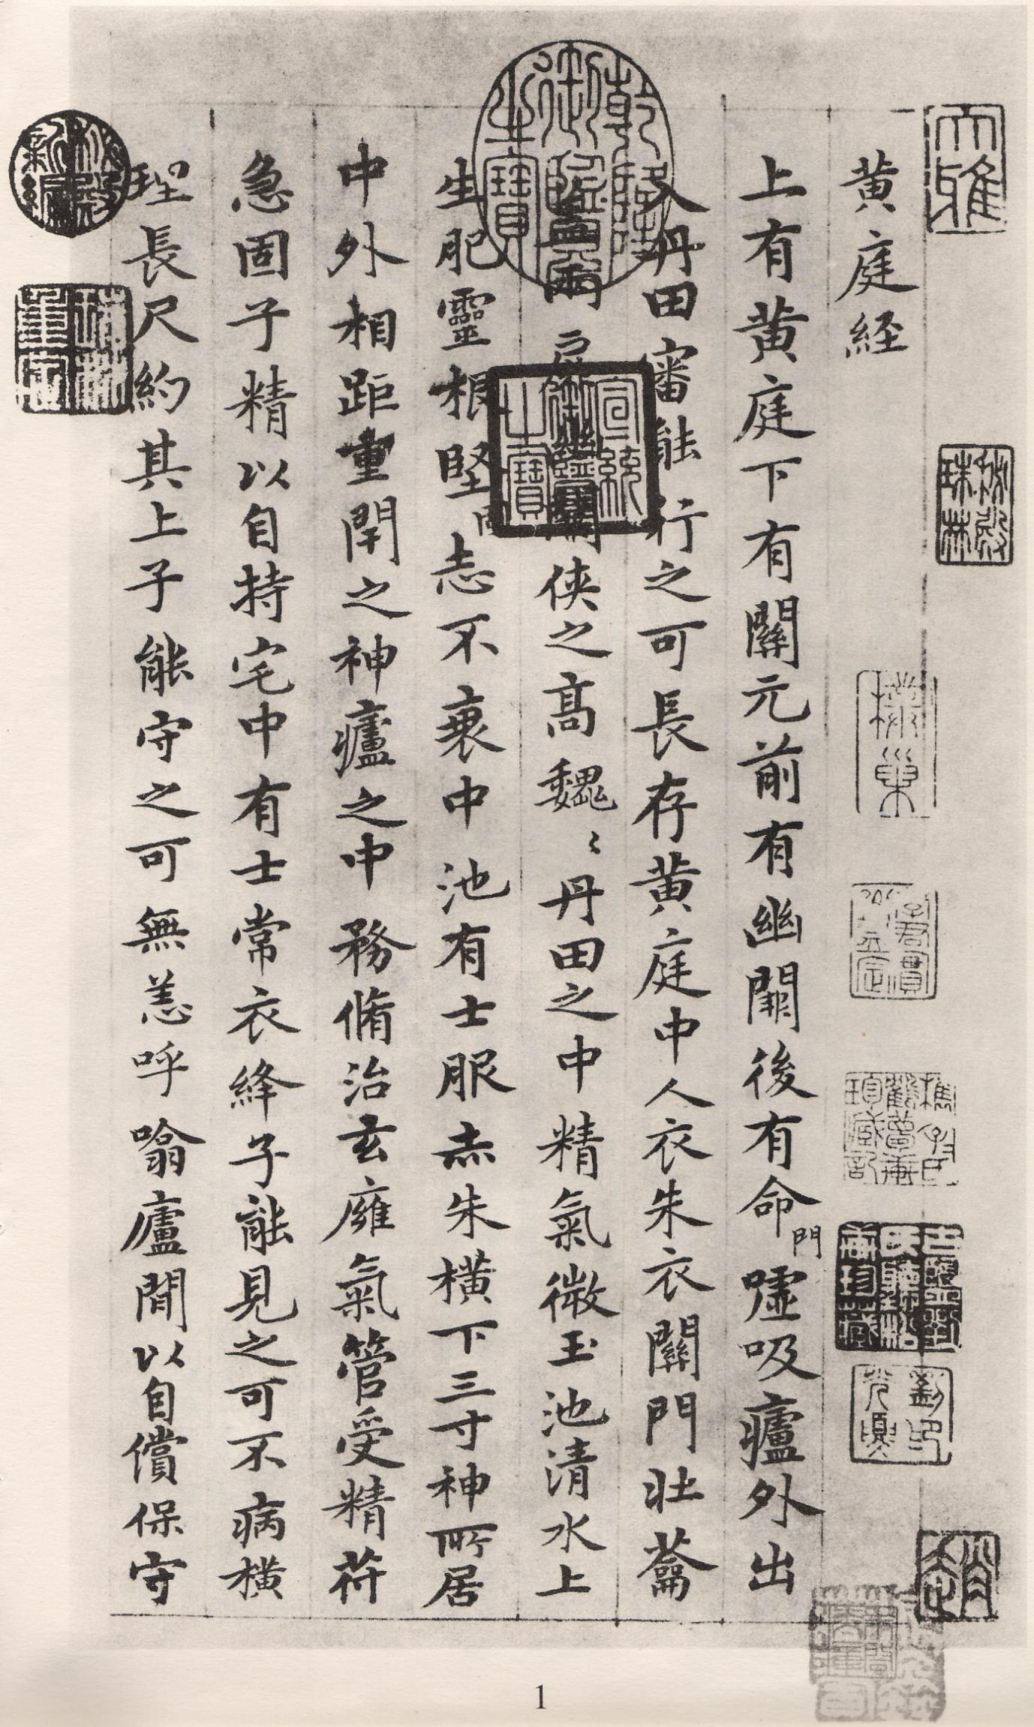 黄庭経
上有黄庭下有關元前有幽闕後有命門噓吸廬外出
入丹田審能行之可長存黄庭中人衣朱衣關門壯蘥
蓋兩扉俠之高巍〻丹田之中精氣微玉池清水上
生肥靈根堅固志不衰中池有士服赤朱横下三寸神所居
中外相距重閇之神廬之中務脩治玄癰氣管受精苻
急固子精以自持宅中有士常衣絳子能見之可不病横
理長尺約其上子能守之可無恙呼噏廬間以自償保守
大雅
宣統御覽之寶
乾隆御覽之寶
1